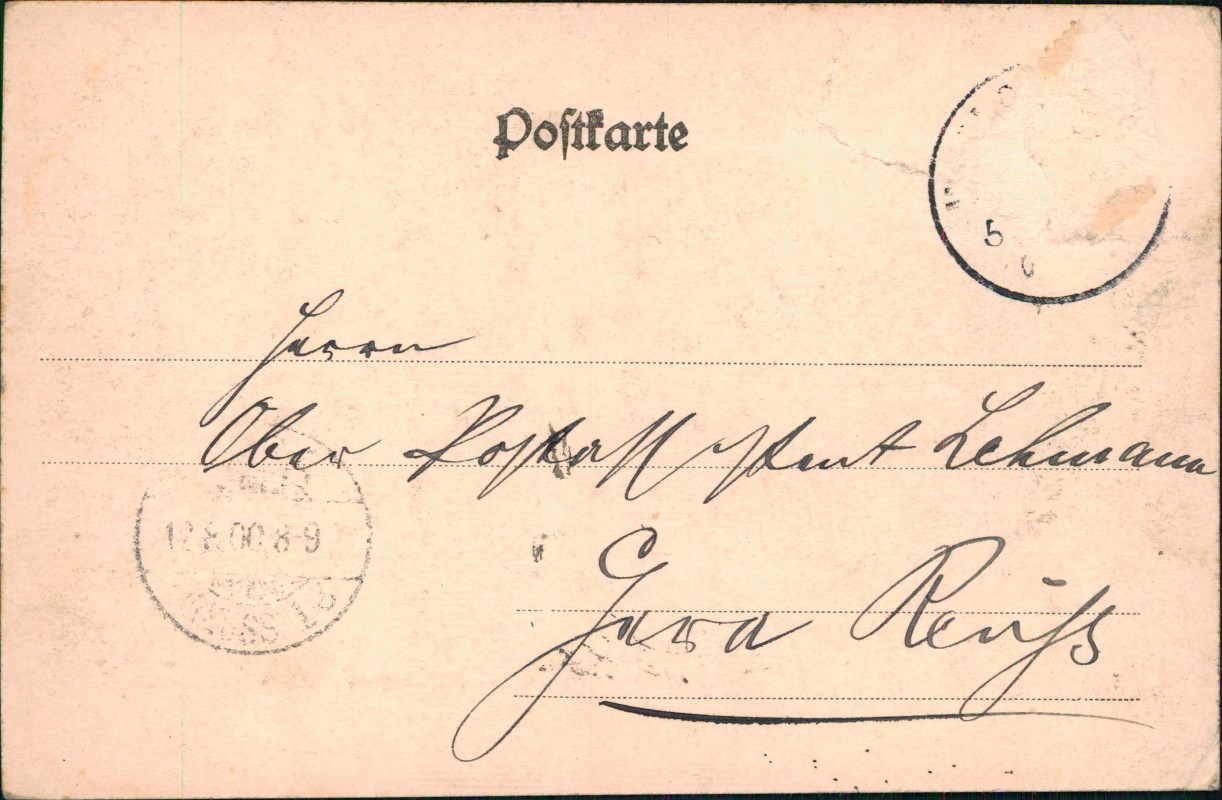 Postkarte
5
Herrn
Ober Postassistent Lehmann
12.8.00.8-9
Gera Reuß